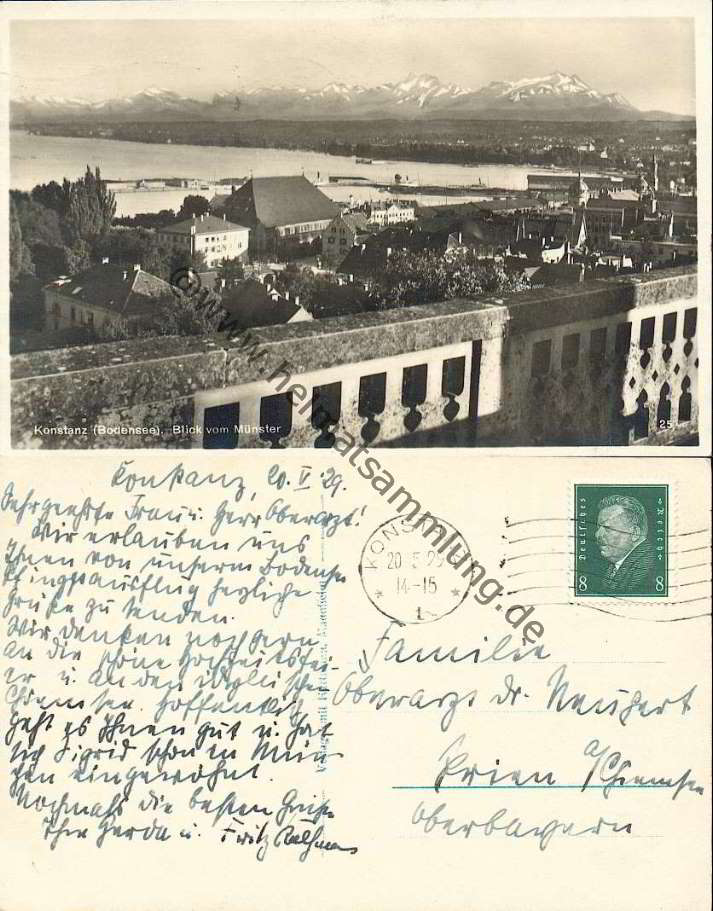 Konstanz (Bodensee). Blick vom Münster
25
www.heimatsammlung.de
Konstanz, 20. V. 29.
Sehr geehrte Frau u. Herr Oberarzt!
Wir erlauben uns
Ihnen von unserm Bodensee
Pfingstausflug herzliche
Grüße zu senden.
Wir denken noch gern
an die schöne Hochzeitsfei-
er u. an den idyllischen
Chiemsee. Hoffentlich
geht es Ihnen gut u. hat
sich Sigrid schon in Mün-
chen eingewöhnt.
Nochmals die besten Grüße
Ihre Gerda u. Fritz
KONSTANZ
20.5.29
14-15
* 1 *
Deutsches Reich
8 8
Familie
Oberarzt Dr. Neugert
Prien a/Chiemsee
Oberbayern